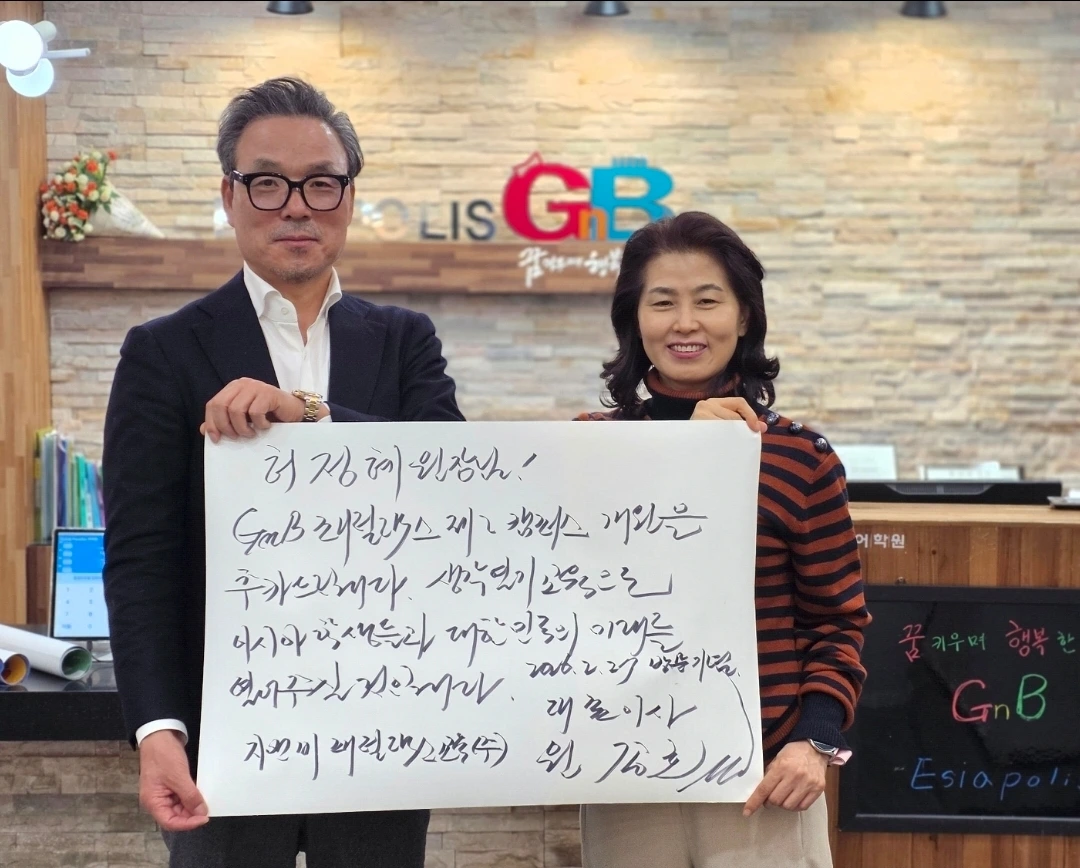 OLIS GnB
꿈 키우며 행복
허정혜 원장님!
GnB 패럴랙스 제2 캠퍼스 개원을
축하드립니다. 생각열기 교육으로
아시아 학생들과 대한민국의 미래를
열어주실 것입니다. 2026.2.27 방문기념.
대표이사
지앤비 패럴랙스교육(주) 원
어학원
꿈 키우며 행복한
GnB
Esiapolis